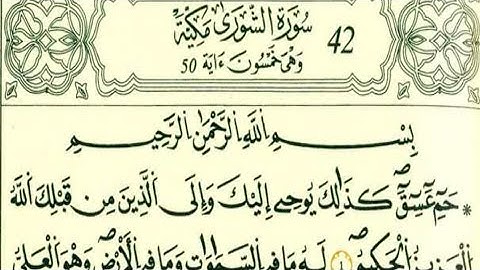 سُورَةُ الشُّورَىٰ مَكِّيَّةٌ
42
وَهْىَ خَمْسُونَ ءَايَةً 50
بِسْمِ اللَّهِ الرَّحْمَٰنِ الرَّحِيمِ
حَمِٓ عَٓسِٓقَٓ كَذَٰلِكَ يُوحِےٓ إِلَيْكَ وَإِلَى اَلذِينَ مِن قَبْلِكَ اَللَّهُ
اُلْعَزِيزُ اُلْحَكِيمُ ۝١ لَهُۥ مَا فِے اِلسَّمَٰوَٰتِ وَمَا فِے اِلْأَرْضِ وَهُوَ اَلْعَلِىُّ